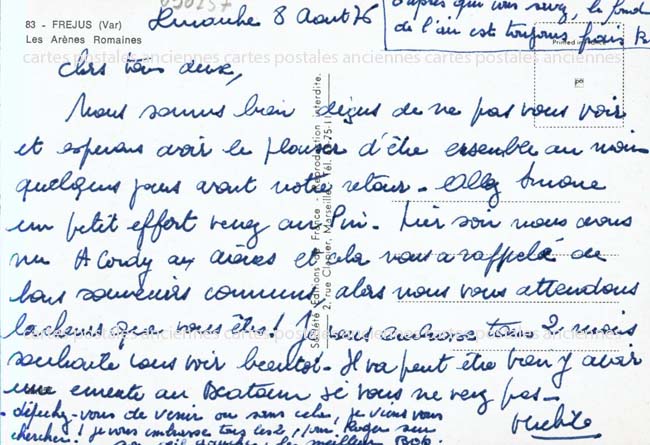 83 - FREJUS (Var)
Les Arènes Romaines
Dimanche 8 Août 76
d'après que vous savez, le fond
de l'air est toujours frais
Printed in
cartes postales anciennes cartes postales anciennes cartes postales anciennes
Chers tous deux,
Nous sommes bien déçus de ne pas vous voir
et espérons avoir le plaisir d'être ensemble au moins
quelques jours avant notre retour - Allez Simone
un petit effort venez au Pin. Hier soir nous avons
vu A Cordy aux arènes et cela nous a rappelé de
bons souvenirs communs, alors nous vous attendons
lacheurs que vous êtes !
tous 2 mais
souhaite vous voir bientôt - Il va peut être bien y avoir
une émeute au si vous ne venez pas -
- dépêchez-vous de venir ou sans cela, je viens vous
chercher ! je vous embrasse tous
le meilleur BOB.
Société Editions de France - Reproduction interdite.
2, rue Clapier, Marseille. Tél.